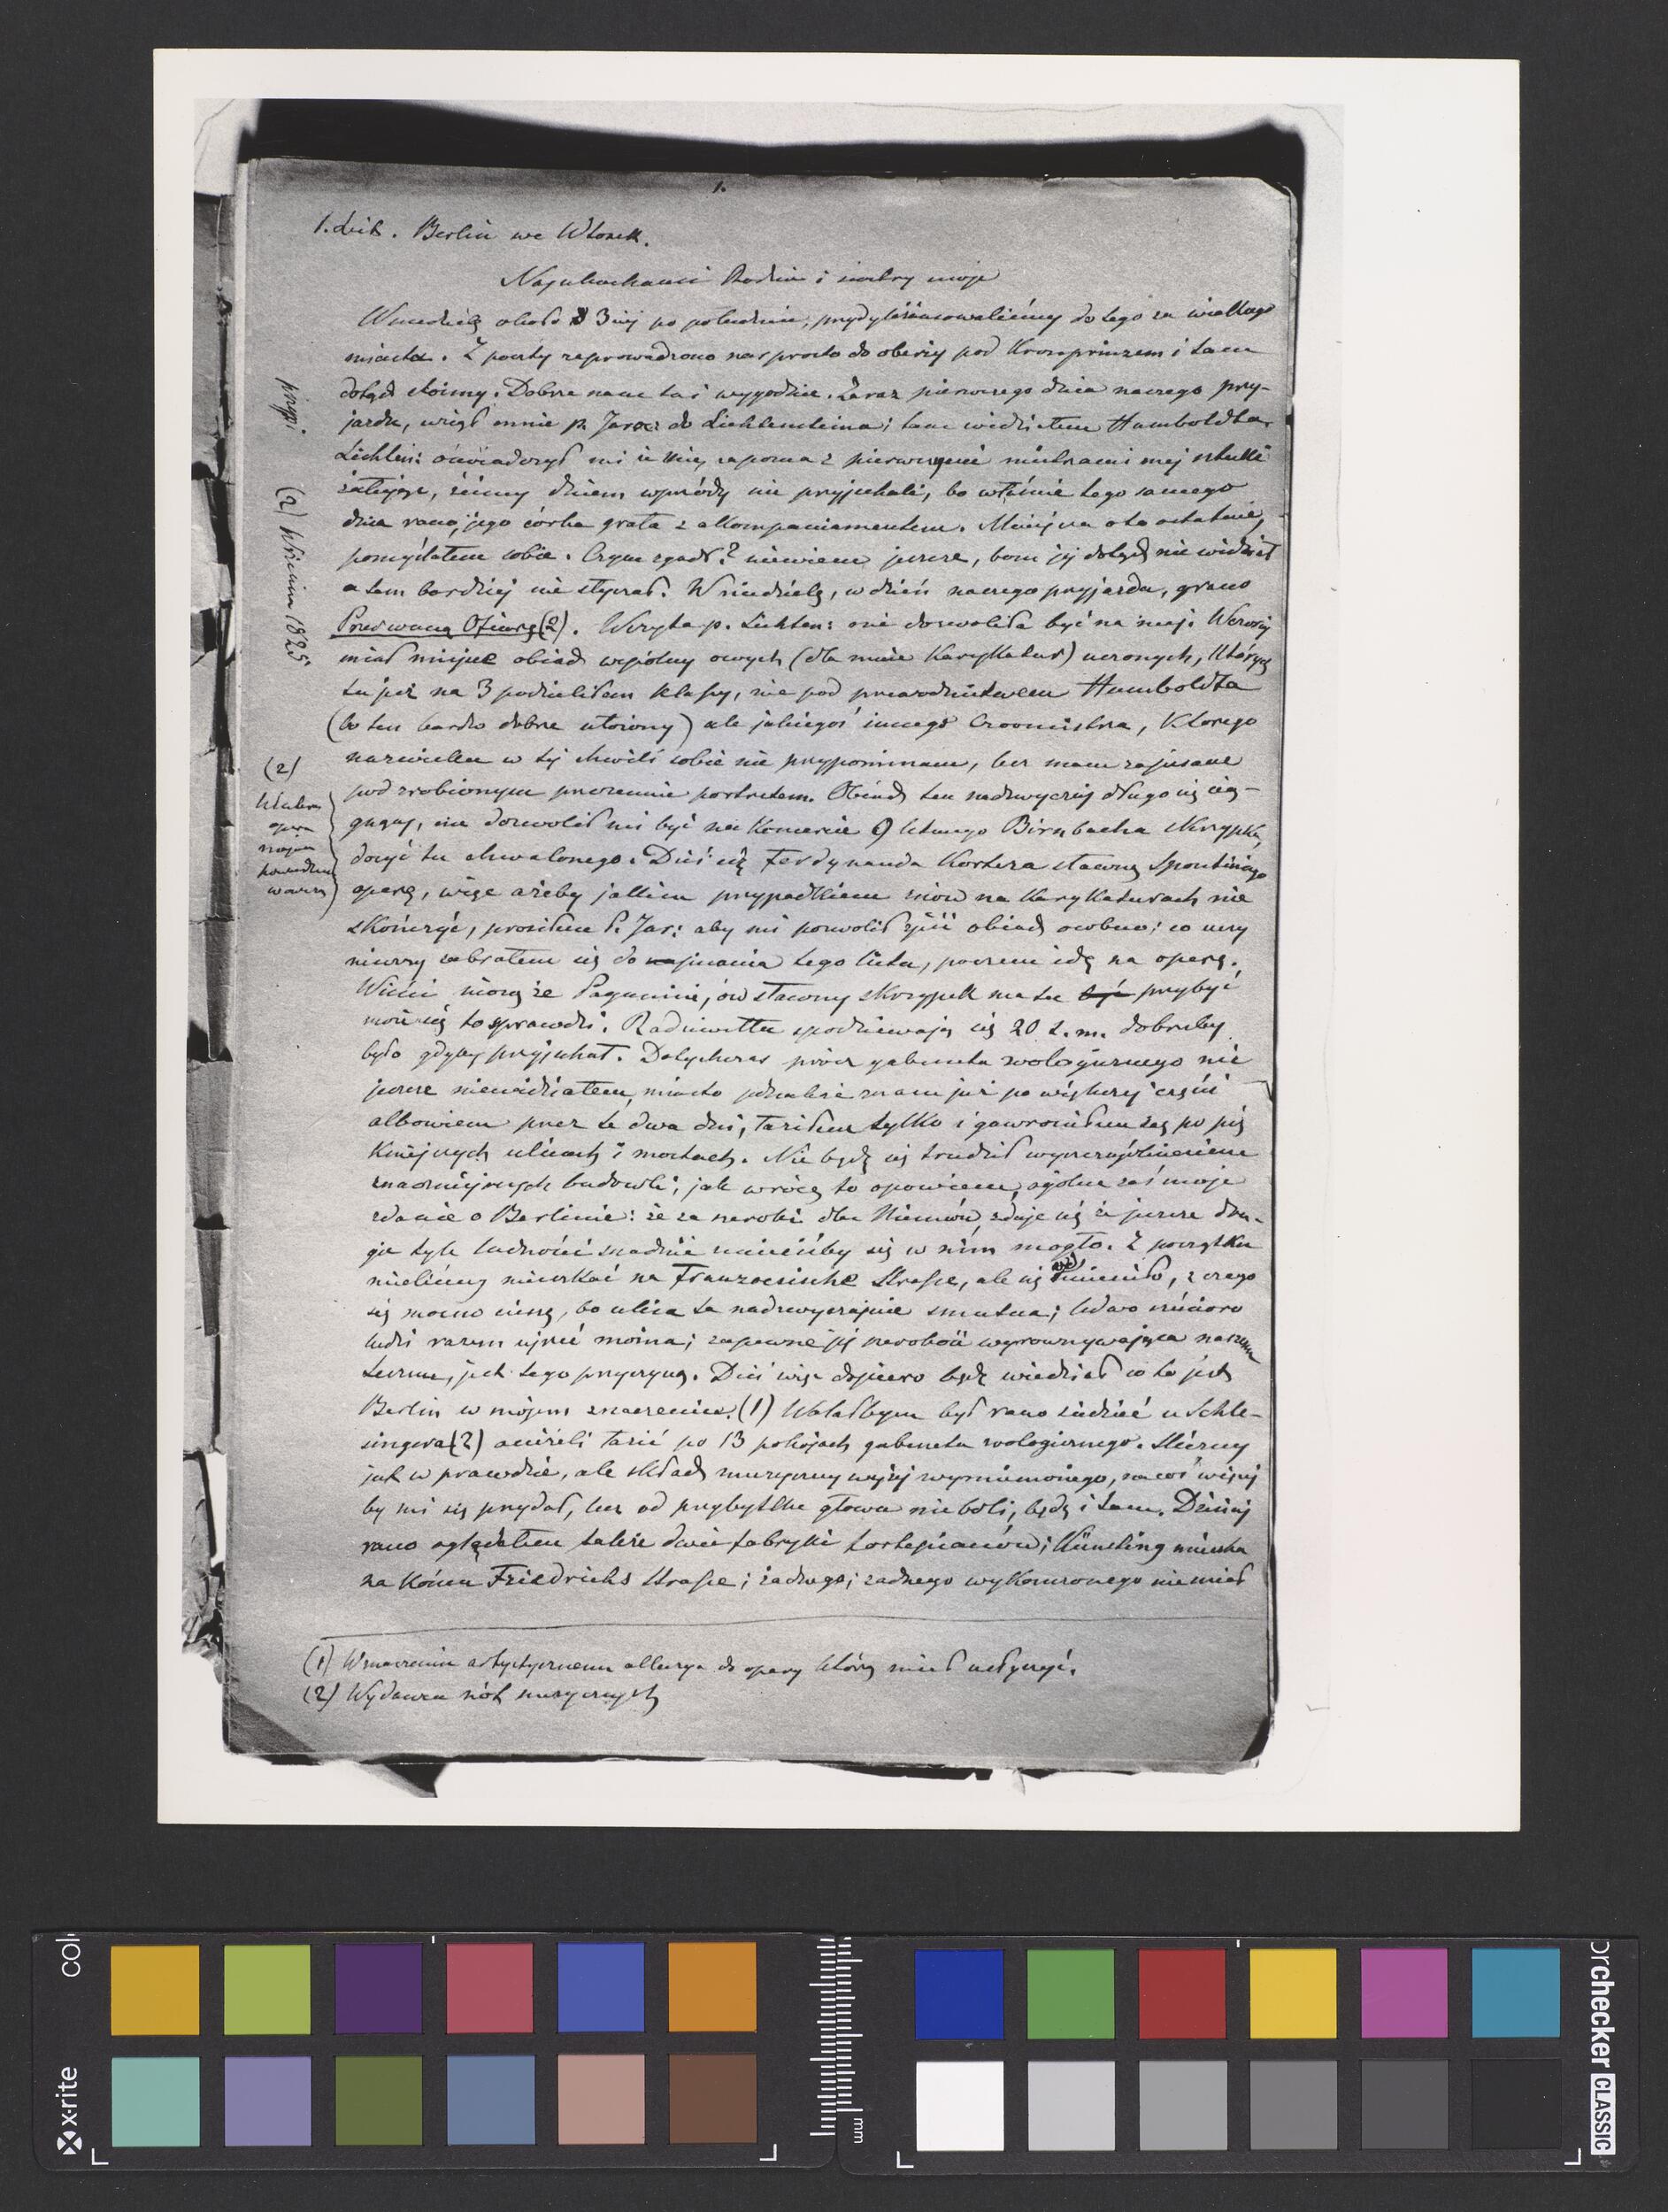 1.
1. List. Berlin we Wtorek.
Najukochańsi Rodzice i siostry moje
W niedzielę około 3ciej po południu, przydyliżansowaliśmy do tego za wielkiego
miasta. Z poczty zaprowadzono nas prosto do oberży pod Kronprinzem i tam
dotąd stoimy. Dobrze nam tu i wygodnie. Zaraz pierwszego dnia naszego przy-
jazdu, wziął mnie p. Jaroc: do Lichtensteina; tam widziałem Humboldta.
Lichten: oświadczył mi że mię zapozna z pierwszymi mistrzami mej sztuki
żałując, żeśmy dniem wprzódy nie przyjechali, bo właśnie tego samego
dnia rano, jego córka grała z akompaniamentem. Mniejsza o to ostatnie,
pomyślałem sobie. Czym zgadł? niewiem jeszcze, bom jej dotąd nie widział
a tem bardziej nie słyszał. W niedzielę, w dzień naszego przyjazdu, grano
Przerwaną Ofiarę (2). Wizyta p. Lichten: nie dozwoliła być na niej. Wczoraj
miał miejsce obiad wspólny owych (dla mnie Karykatur) uczonych, których
tu już na 3 podzieliłem klassy, nie pod przewodnictwem Humboldta
(bo ten bardzo dobrze ułożony) ale jakiegoś innego Czoomistrza, którego
nazwiska w tej chwili sobie nie przypominam, lecz mam zapisane
pod zrobionym przezemnie portretem. Obiad ten nadzwyczaj długo się cią-
gnący, nie dozwolił mi być na Koncercie 9 letniego Birnbacha skrzypka,
dosyć tu chwalonego. Dziś idę Ferdynanda Korteza sławną Spontiniego
operę, więc ażeby jakim przypadkiem znów na Karykaturach nie
skończyć, prosiłem P. Jar: aby mi pozwolił zjeść obiad osobno; co uczy
niwszy zabrałem się do napisania tego listu, poczem idę na operę.
Wieści niosą że Paganini, ów sławny skrzypek ma tu być przybyć
może się to sprawdzi. Radziwiłła spodziewają się 20 t. m. dobrzeby
było gdyby przyjechał. Dotychczas prócz gabinetu zoologicznego nic
jeszcze niewidziałem, miasto jednakże znam już po większej części
albowiem przez te dwa dni, łaziłem tylko i gawroniłem się po pię
kniejszych ulicach i mostach. Nie będę się trudził wyszczególnieniem
znaczniejszych budowli, jak wrócę to opowiem, ogólne zaś moje
zdanie o Berlinie: że za szeroki dla Niemców, zdaje się że jeszcze dru-
gie tyle ludności snadnie mieścićby się w nim mogło. Z początku
mieliśmy mieszkać na Franzoesische Strasse, ale się odmieniło, z czego
się mocno cieszę, bo ulica ta nadzwyczajnie smutna; ledwo sześcioro
ludzi razem ujrzeć można; zapewne jej szerokość wyrównywająca naszemu
Lesznu, jest tego przyczyną. Dziś więc dopiero będę wiedział co to jest
Berlin w mojem znaczeniu. (1) Wolałbym był rano siedzieć u Schle-
singera (2) aniżeli łazić po 13 pokojach gabinetu zoologicznego. Śliczny
jest w prawdzie, ale skład muzyczny wyżej wymienionego, na coś więcej
by mi się przydał, lecz od przybytku głowa nie boli; będę i tam. Dzisiaj
rano oglądałem także dwie fabryki fortepianów; Künsling mieszka
na końcu Friedrichs Strasse; żadnego; żadnego wykończonego niemiał
(1) W znaczeniu artystycznem alluzya do opery którą miał usłyszeć.
(2) Wydawca nót muzycznych
przyp. (2) Września 1825
(2)
opera